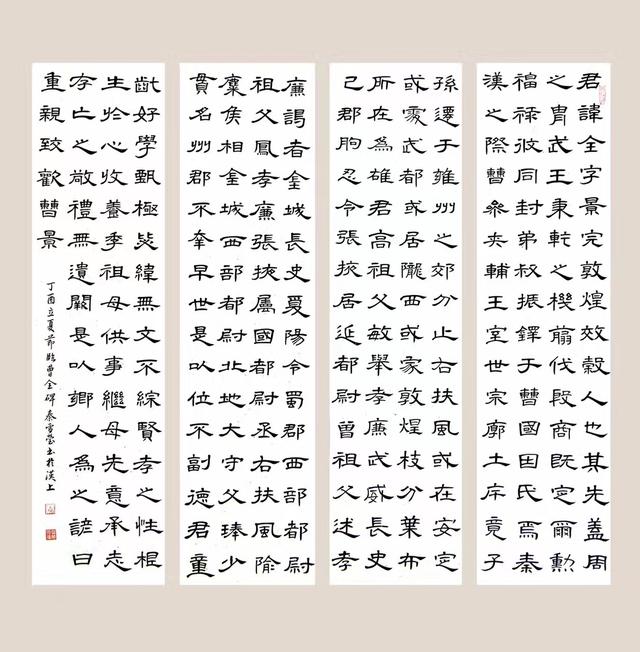 君諱全字景完敦煌效穀人也其先蓋周
之胄武王秉乾之機翦伐殷商既定爾勳
福祿攸同封弟叔振鐸于曹國因氏焉秦
漢之際曹參夾輔王室世宗廓土斥竟子
孫遷于雍州之郊分止右扶風或在安定
或處武都或居隴西或家敦煌枝分葉布
所在為雄君高祖父敏舉孝廉武威長史
巴郡朐忍令張掖居延都尉曾祖父述孝
廉謁者金城長史夏陽令蜀郡西部都尉
祖父鳳孝廉張掖屬國都尉丞右扶風隃
麋侯相金城西部都尉北地大守父琫少
貫名州郡不幸早世是以位不副德君童
齔好學甄極毖緯無文不綜賢孝之性根
生於心收養季祖母供事繼母先意承志
存亡之敬禮無遺闕是以鄉人為之諺曰
重親致歡曹景
丁酉立夏節臨曹全碑秦雪瑩書於漢上